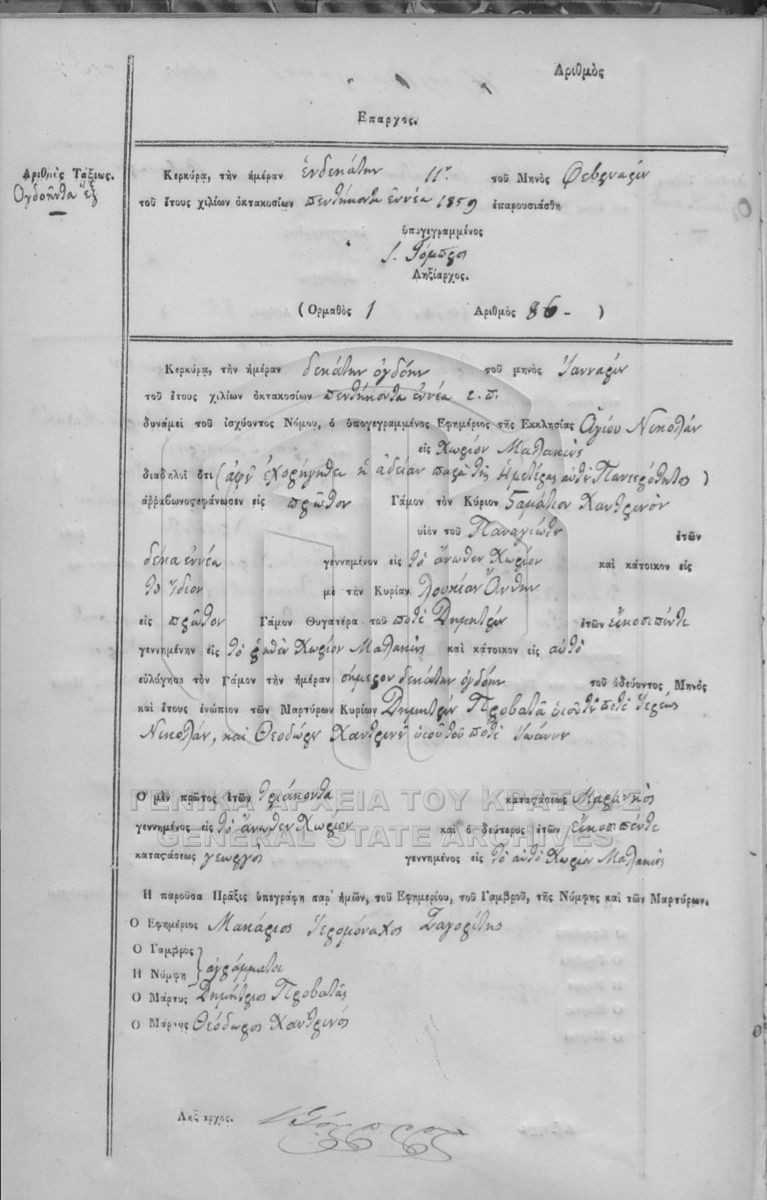 Αριθμὸς
Επαρχος.
Αριθμὸς Τάξεως.
Ογδοῆντα ἕξ
Κερκύρα, τὴν ἡμέραν ἑνδεκάτην 11ην τοῦ Μηνὸς Φεβρουαρίου
τοῦ ἔτους χιλίων ὀκτακοσίων πεντήκοντα ἐννέα 1859 ἐπαρουσιάσθη
ὑπογεγραμμένος
Ληξίαρχος.
(Ορμαθὸς 1 Αριθμὸς 86 - )
Κερκύρα, τὴν ἡμέραν δεκάτην ὀγδόην τοῦ μηνὸς Ἰανναρίου
τοῦ ἔτους χιλίων ὀκτακοσίων πεντήκοντα ἐννέα ε. π.
δυνάμει τοῦ ἰσχύοντος Νόμου, ὁ ὑπογεγραμμένος Εφημέριος τῆς Εκκλησίας Ἁγίου Νικολάου
εἰς Χωρίον
διαδηλοῖ ὅτι (ἀφοῦ ἐχορήγηθει ἡ ἄδειαν παρὰ τῆς ἡμετέρας αὐτοῦ Πανιερότητος)
ἀῤῥαβωνοςεφάνωσεν εἰς πρῶτον Γάμον τὸν Κύριον Σαμάτιον Χανδρινὸν
υἱὸν τοῦ Παναγιώτου ἐτῶν
δέκα ἐννέα γεννημένον εἰς τὸ ἄνωθεν Χωρίον καὶ κάτοικον εἰς
τὸ ἴδιον μὲ τὴν Κυρίαν Λουκίαν Ἄνθην
εἰς πρῶτον Γάμον Θυγατέρα τοῦ ποτὲ Δημητρίου ἐτῶν εἰκοσιπέντε
γεννημένην εἰς τὸ ῥηθὲν Χωρίον καὶ κάτοικον εἰς αὐτὸ
εὐλόγησε τὸν Γάμον τὴν ἡμέραν σήμερον δεκάτην ὀγδόην τοῦ ὁδεύοντος Μηνὸς
καὶ ἔτους ἐνώπιον τῶν Μαρτύρων Κυρίων Δημητρίου Προβατᾶ υἱοῦ τοῦ ποτὲ Ἱερέως
Νικολάου, καὶ Θεοδώρου Χανδρινοῦ υἱοῦ τοῦ ποτὲ Ἰωάννου
Ο μὲν πρῶτος ἐτῶν τριάκοντα καταςάσεως
γεννημένος εἰς τὸ ἄνωθεν Χωρίον καὶ ὁ δεύτερος ἐτῶν εἰκοσιπέντε
καταςάσεως γεωργὸς γεννημένος εἰς τὸ αὐτὸ Χωρίον
ΓΕΝΙΚΑ ΑΡΧΕΙΑ ΤΟΥ ΚΡΑΤΟΥΣ
GENERAL STATE ARCHIVES
Η παροῦσα Πρᾶξις ὑπεγράφη παρ' ἡμῶν, τοῦ Εφημερίου, τοῦ Γαμβροῦ, τῆς Νύμφης καὶ τῶν Μαρτύρων.
Ο Εφημέριος Μακάριος Ἱερομόναχος Ζαγορίτης
Ο Γαμβρὸς
Η Νύμφη } ἀγράμματοι
Ο Μάρτυς Δημήτριος Προβατᾶς
Ο Μάρτυς Θεόδωρος Χανδρινός
Ληξίαρχος.